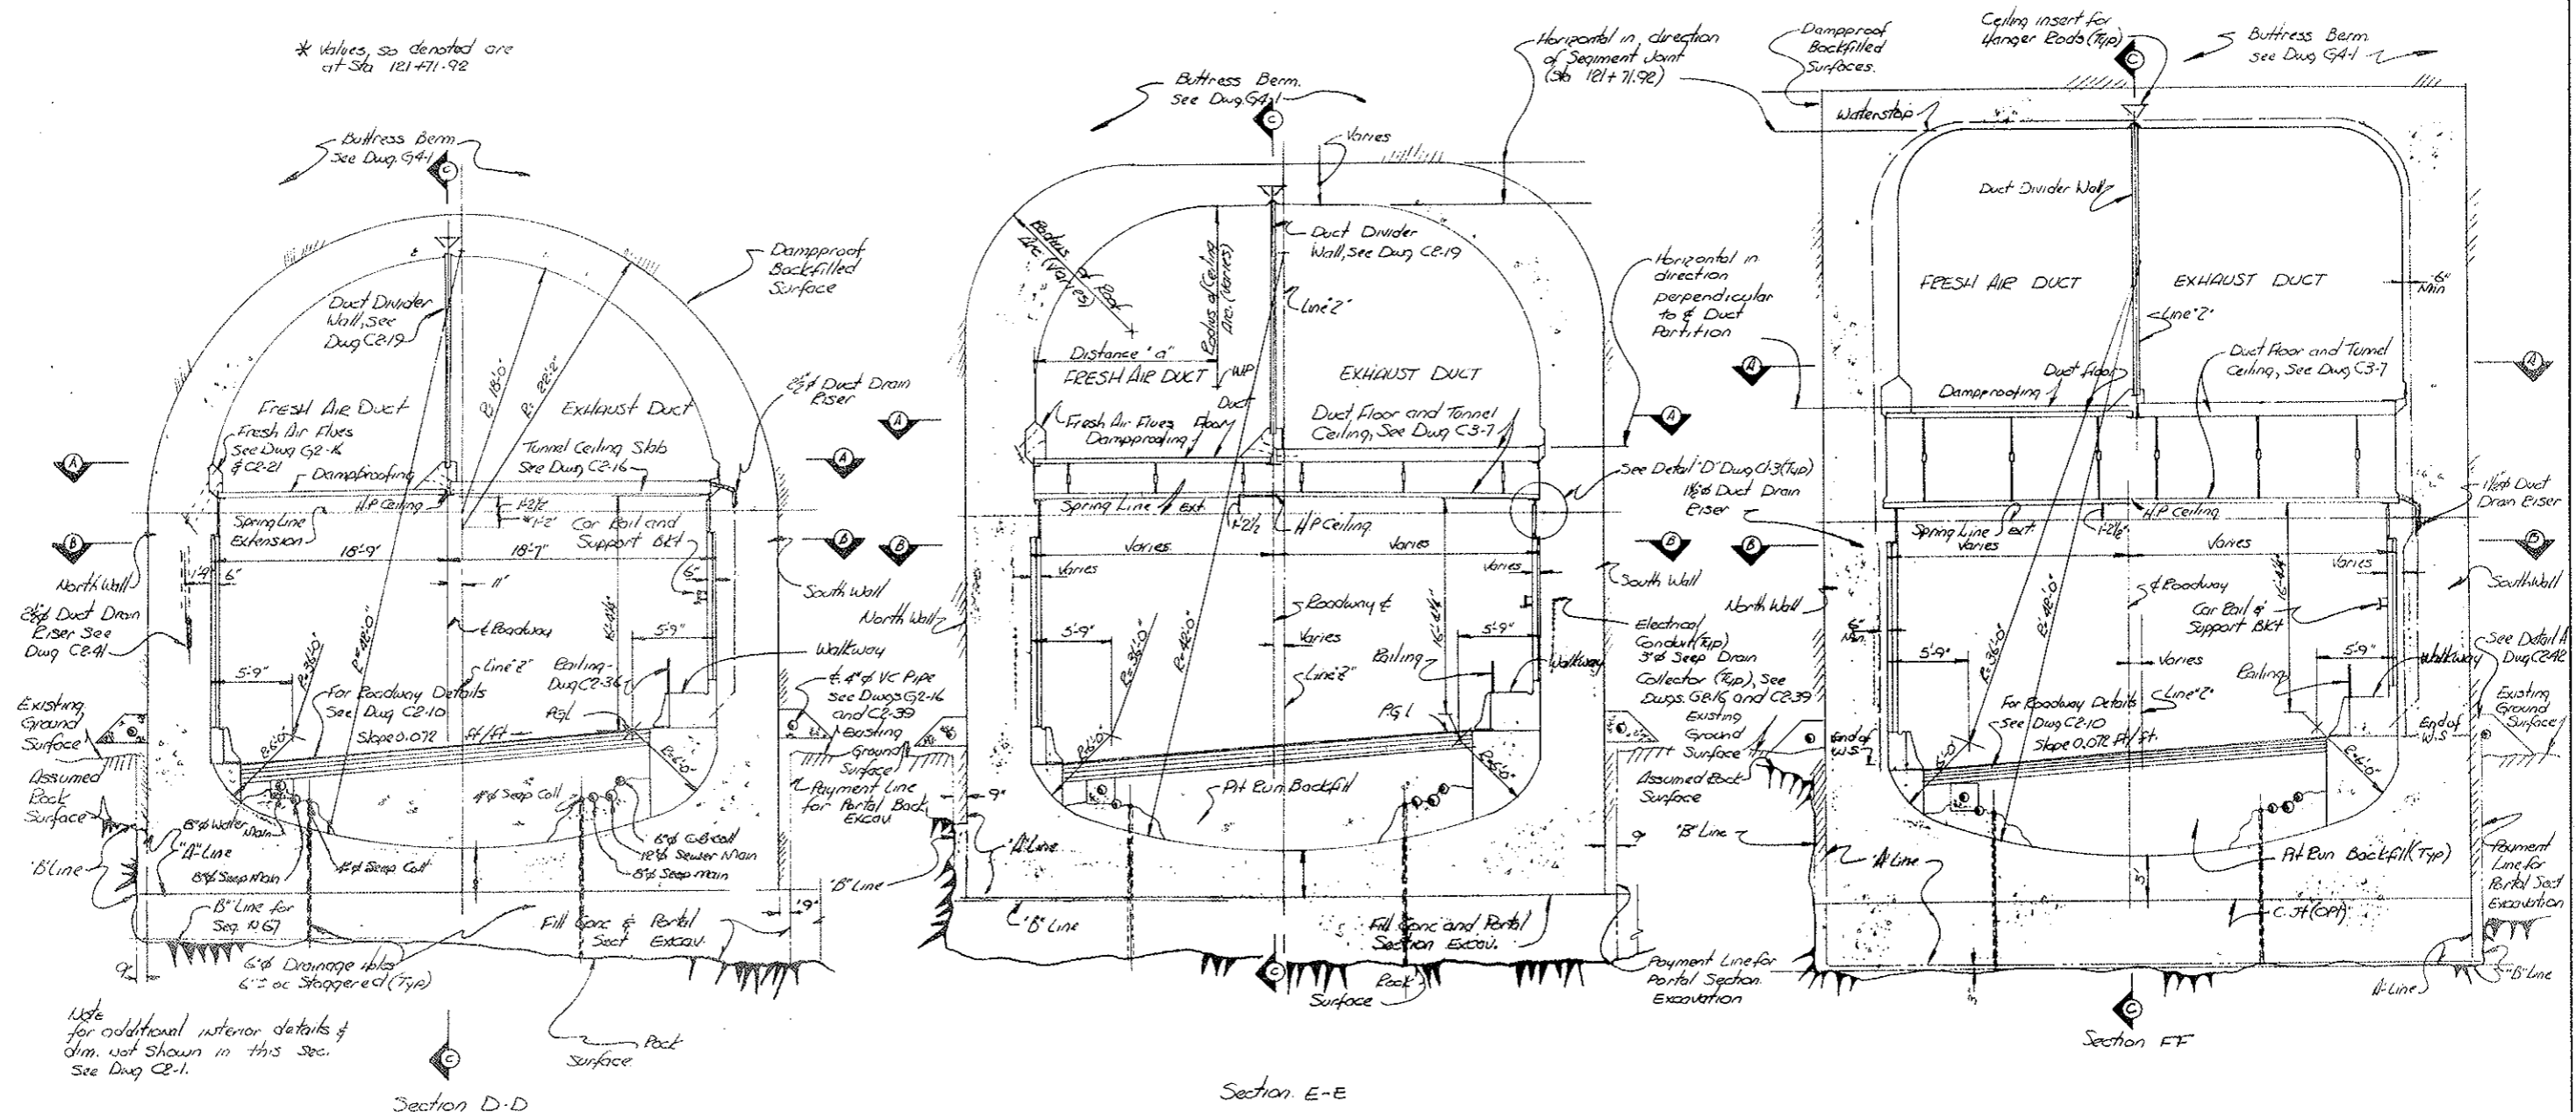 * Values, so denoted are
at Sta 121+71.92
Buttress Berm
See Dwg. G4-1
C
Dampproof
Backfilled
Surface
Duct Divider
Wall, See
Dwg C2-19
R= 18'-0"
R= 22'-2"
2½"ø Duct Drain
Riser
FRESH AIR DUCT
EXHAUST DUCT
Fresh Air Flues
See Dwg G2-16
& C2-21
Tunnel Ceiling Slab
See Dwg C2-16
Dampproofing
A
A
H.P. Ceiling
1'-2½"
*1'-2"
Spring Line
Extension
Car Rail and
Support Bkt
B
B
18'-9"
18'-7"
North Wall
1'-9"
6"
11"
6"
South Wall
2½"ø Duct Drain
Riser See
Dwg C2-41
℄ Roadway
16'-4½"
5'-9"
5'-9"
R=36'-0"
R=42'-0"
Line "Z"
Railing-
Dwg C2-36
Walkway
℄ 4"ø VC Pipe
See Dwgs G2-16
and C2-39
For Roadway Details
See Dwg C2-10
P.G.L.
Slope 0.072 ft/ft
Existing
Ground
Surface
Existing
Ground
Surface
R=6'-0"
R=6'-0"
Assumed
Rock
Surface
Payment Line
for Portal Back
Excav
9"
8"ø Water
Main
4"ø Seep Coll
6"ø C.B. Coll
12"ø Sewer Main
8"ø Seep Main
"A" Line
"B" Line
8"ø Seep Main
4"ø Seep Coll
"B" Line
"B" Line for
Seg. N67
Fill Conc & Portal
Sect Excav.
9"
9"
6"ø Drainage Holes
6'± oc Staggered (Typ)
Note
for additional interior details &
dim. not shown in this Sec.
See Dwg C2-1.
Rock
Surface
C
Section D-D
Buttress Berm.
See Dwg. G4-1
C
Varies
Horizontal in direction
of Segment Joint
(Sta 121+71.92)
Radius of Roof
Arc (Varies)
Radius of Ceiling
Arc. (Varies)
Duct Divider
Wall, See Dwg C2-19
Line "Z"
Horizontal in
direction
perpendicular
to ℄ Duct
Partition
Distance "a"
FRESH AIR DUCT
WP
EXHAUST DUCT
Duct
Floor
Fresh Air Flues
Dampproofing
Duct Floor and Tunnel
Ceiling, See Dwg C3-7
A
A
See Detail "D" Dwg C1-3 (Typ)
1½"ø Duct Drain
Riser
Spring Line Ext.
1'-2½
H.P. Ceiling
B
B
Varies
Varies
Varies
Varies
South Wall
North Wall
Roadway ℄
Varies
16'-4½"
5'-9"
5'-9"
R=36'-0"
R=42'-0"
Railing
Walkway
Line "Z"
P.G.L
Electrical
Conduit (Typ)
3"ø Seep Drain
Collector (Typ), See
Dwgs. G2-16 and C2-39
Existing
Ground
Surface
Assumed Rock
Surface
R=6'-0"
R=6'-0"
Pit Run Backfill
"A" Line
"B" Line
9"
"B" Line
Fill Conc and Portal
Section Excav.
Payment Line for
Portal Section
Excavation
Rock
Surface
C
Section E-E
Dampproof
Backfilled
Surfaces.
Ceiling insert for
Hanger Rods (Typ)
C
Buttress Berm
see Dwg G4-1
Waterstop
Duct Divider Wall
FRESH AIR DUCT
EXHAUST DUCT
6"
Min
Line "Z"
Duct Floor
Duct Floor and Tunnel
Ceiling, See Dwg C3-7
Dampproofing
A
A
H.P. Ceiling
1½"ø Duct
Drain Riser
Spring Line Ext.
1'-2½"
B
B
Varies
Varies
Varies
South Wall
North Wall
℄ Roadway
16'-4½"
Car Rail &
Support Bkt
6"
Min.
5'-9"
5'-9"
R=36'-0"
R=42'-0"
Varies
Railing
Walkway
See Detail A
Dwg C2-42
For Roadway Details
See Dwg C2-10
Line "Z"
Slope 0.072 Ft/Ft.
Existing
Ground
Surface
End of
W.S
End of
W.S
R=6'-0"
"B" Line
"A" Line
Pit Run Backfill (Typ)
C. Jt (OPt)
Payment
Line for
Portal Sect
Excavation
A-Line
"B" Line
C
Section FF